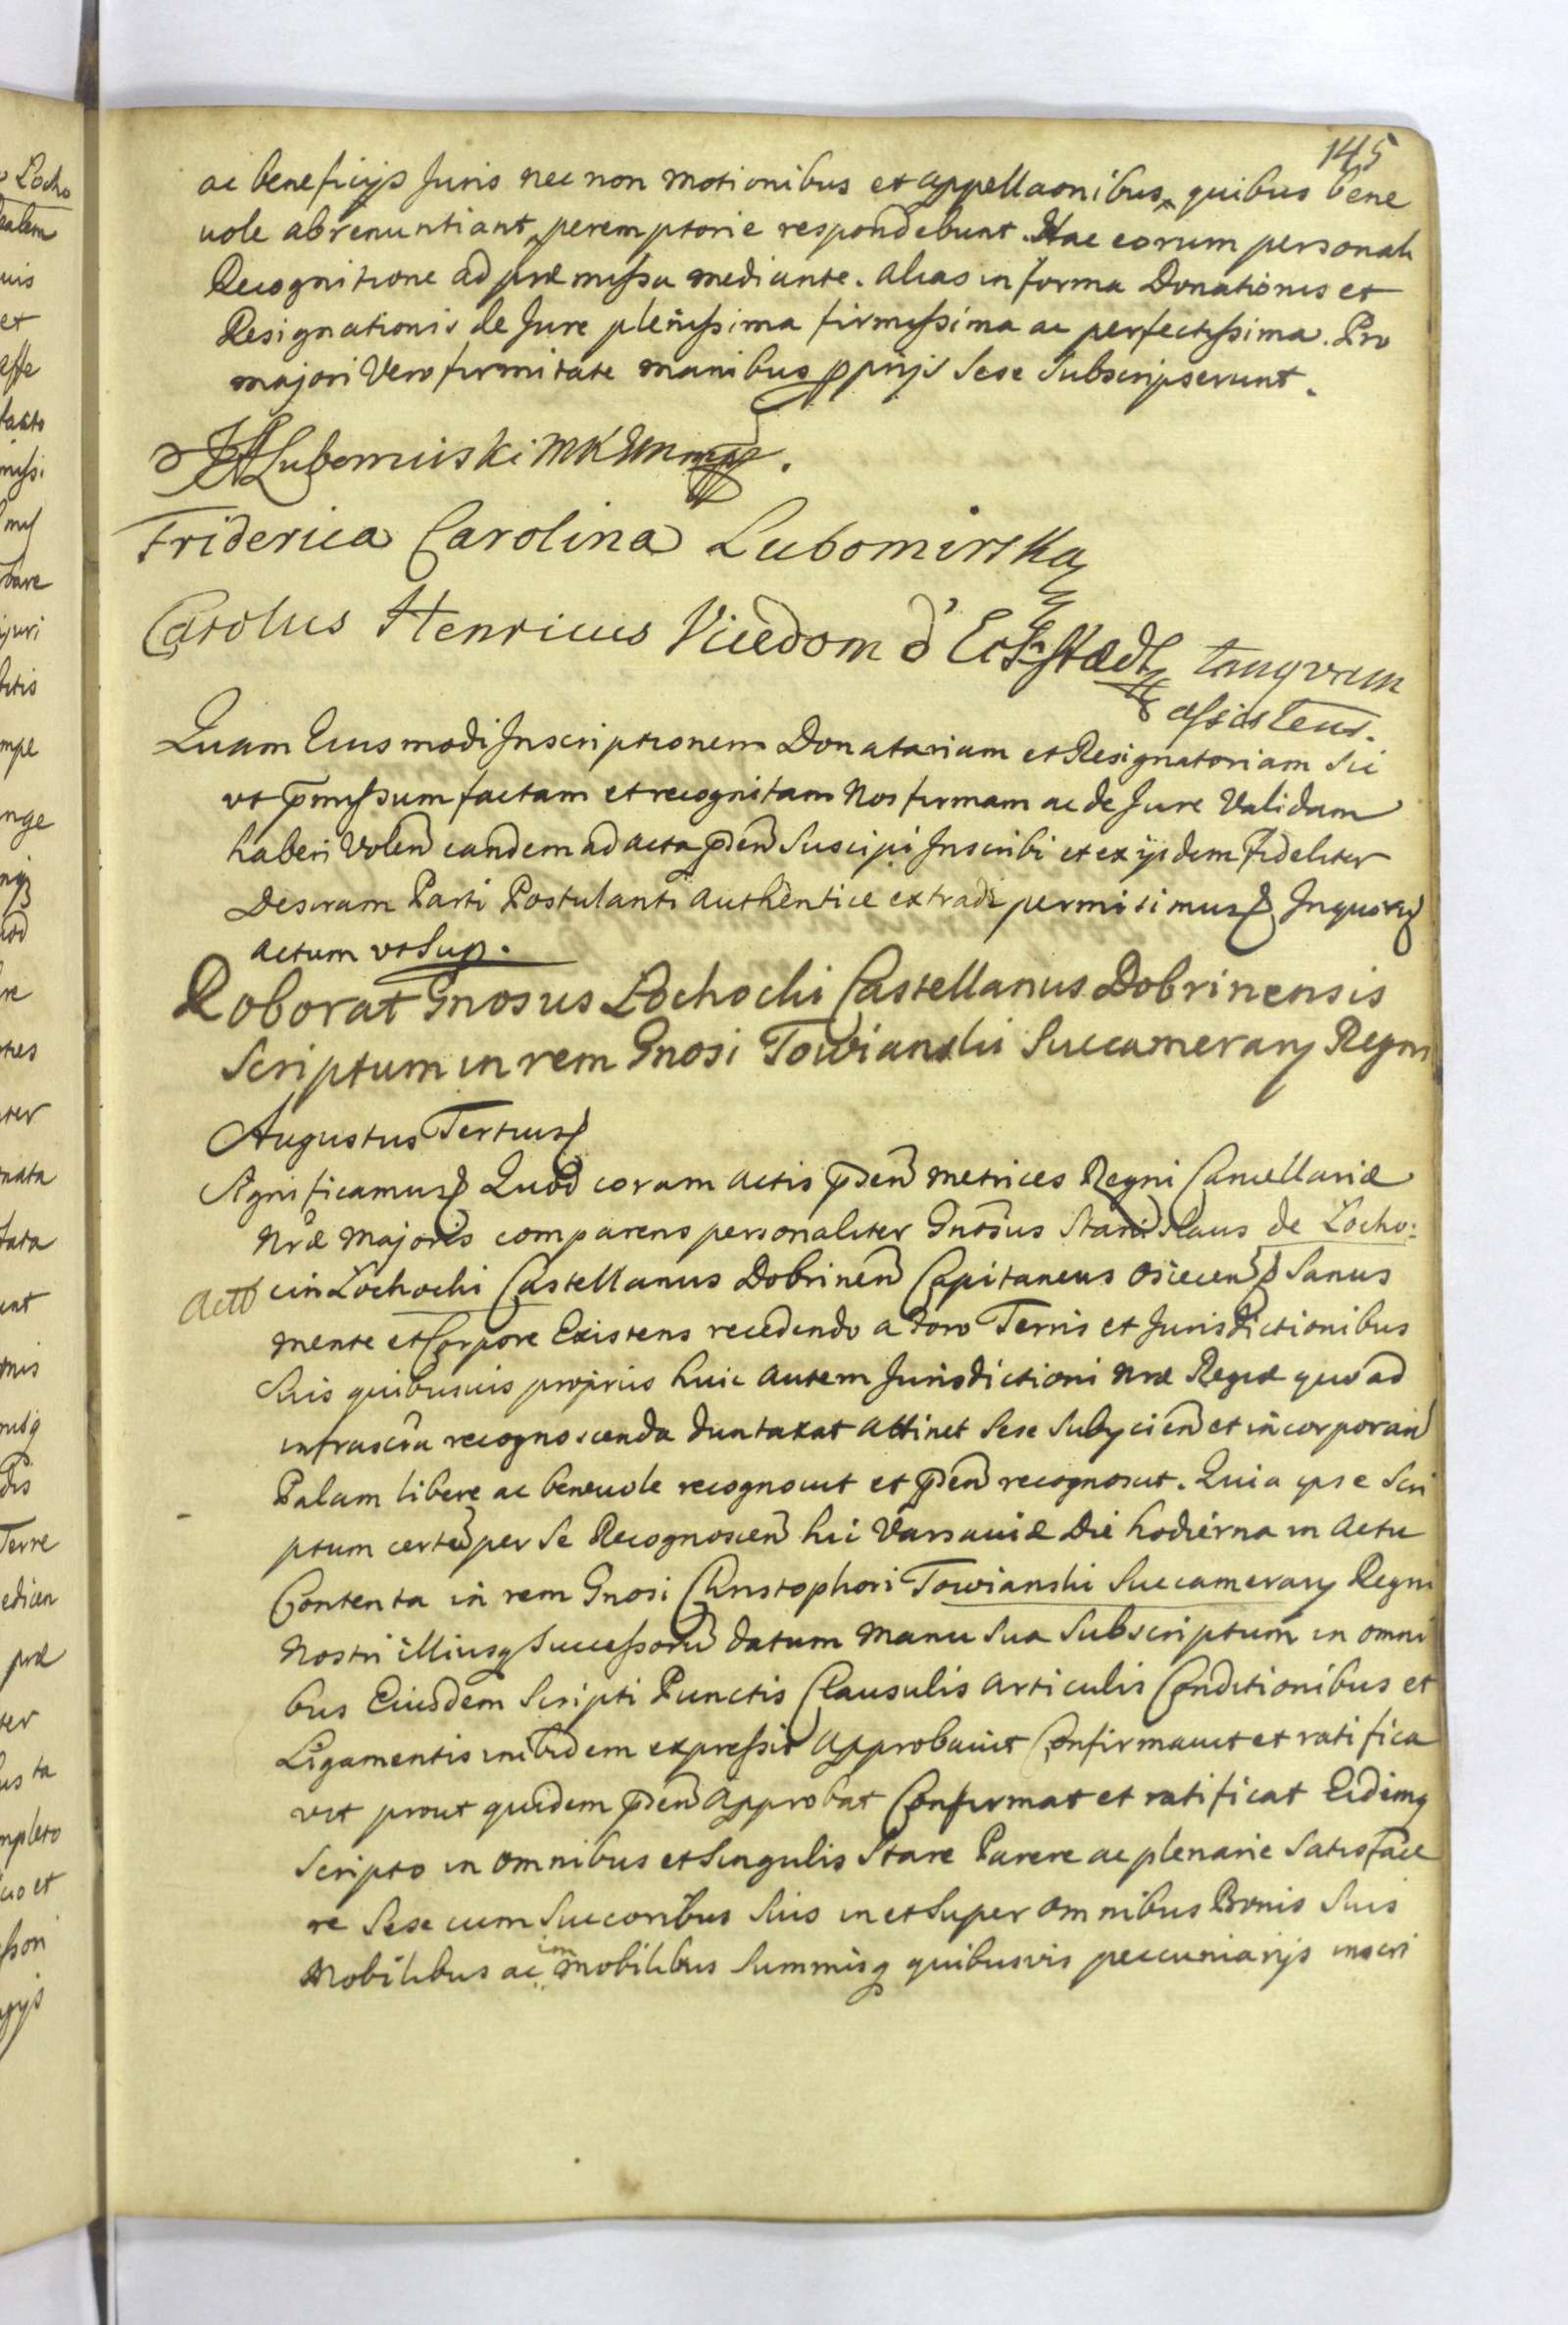 145
ac beneficijs Juris nec non motionibus et appellaonibus, quibus bene
uole abrenuntiant, peremptorie respondebunt. Hac eorum personali
Recognitione ad præmissa mediante. alias in forma Donationis et
Resignationis de Jure plenissima firmissima ac perfectissima. Pro
majori Vero firmitate manibus pprijs sese subscripserunt.
Lubomirski MKWK mpp.
Friderica Carolina Lubomirska
Carolus Henricus Vicedom d' Eckstædt tanqvam
assistens.
Quam Eiusmodi Inscriptionem Donatoriam et Resignatoriam Sic
vt pmissum factam et recognitam Nos firmam ac de Jure Validam
haberi Volen eandem ad acta pden Suscipi Inscribi et ex ijsdem fideliter
Descram Parti Postulanti authentice extradi permisimus Inquorũ
actum vt Sup.
Roborat Gnosus Łochocki Castellanus Dobrinensis
Scriptum in rem Gnosi Towianski Succamerary Regni
Augustus Tertius
Significamus Quod coram actis pden metrices Regni Cancellariæ
Nræ Majoris comparens personaliter Gnosus Stanislaus de Łocho:
Actt cin Łochocki Castellanus Dobrinen Capitaneus Osiecen Sanus
mente et Corpore Existens recedendo a Foro Terris et Jurisdictionibus
Suis quibusuis proprius huic autem Jurisdictioni Nræ Regiæ quo ad
infrascra recognoscenda duntaxat attinet sese subycien et incorporan
Palam libere ac beneuole recognouit et pden recognoscit. Quia ipse Scri
ptum certũ per se Recognoscen hic Varsauiæ Die hodierna in actu
Contenta in rem Gnosi Christophori Towianski Succamerary Regni
Nostri illiusq Successorũ datum manu sua Subscriptum in omni
bus Eiusdem Scripti Punctis Clausulis articulis Conditionibus et
Ligamentis inibidem expressis approbauit Confirmauit et ratifica
vit prout quidem pden approbat Confirmat et ratificat Eidemq
Scripto in omnibus et Singulis Stare Parere ac plenarie satisface
re sese cum Succoribus Suis in et Super omnibus Bonis Suis
mobilibus ac immobilibus Summisq quibusvis pecuniarijs inscri